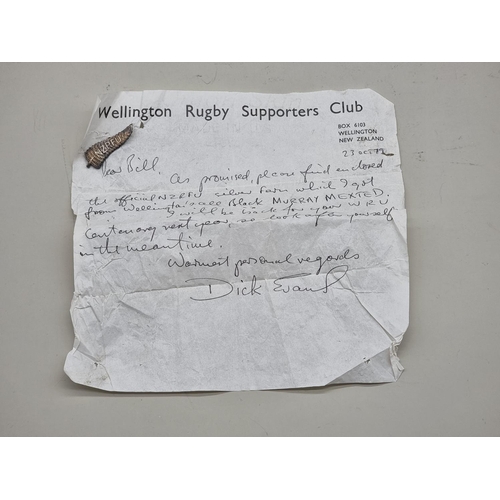 Wellington Rugby Supporters Club
BOX 6103
WELLINGTON
NEW ZEALAND
NZRFU
23 Oct
Dear Bill,
As promised, please find enclosed
the official NZRFU silver fern which I got
from Wellington's All Black MURRAY MEXTED.
I will be back for your W.R.U
Centenary next year, so look after yourself
in the meantime.
Warmest personal regards
Dick Evans